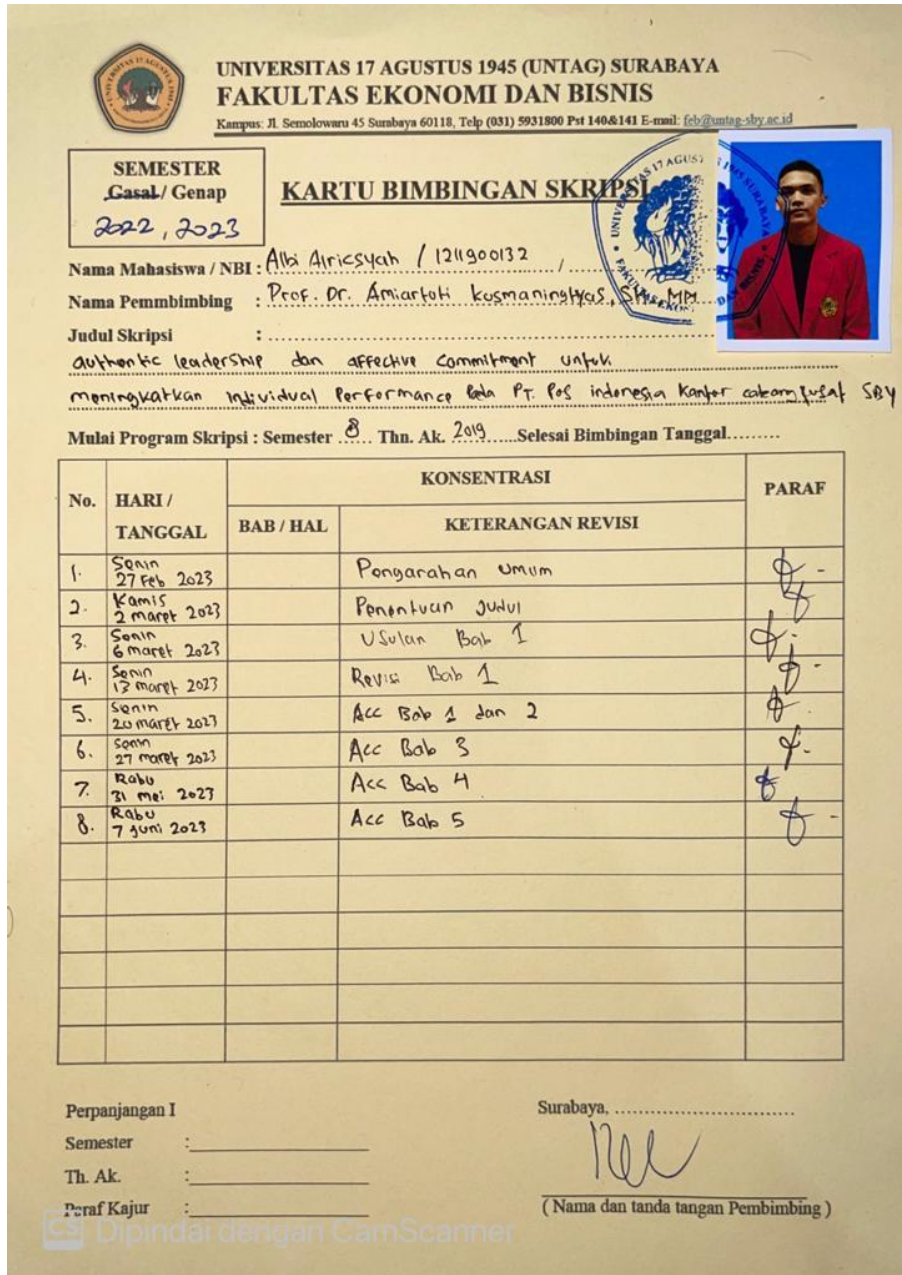 UNIVERSITAS 17 AGUSTUS 1945 (UNTAG) SURABAYA
FAKULTAS EKONOMI DAN BISNIS
Kampus: Jl. Semolowaru 45 Surabaya 60118, Telp (031) 5931800 Pst 140&141 E-mail: feb@untag-sby.ac.id
SEMESTER
Gasal / Genap
2022, 2023
KARTU BIMBINGAN SKRIPSI
Nama Mahasiswa / NBI : Albi Alricsyah / 1211900132 /
Nama Pemmbimbing : Prof. Dr. Amiartuti Kusmaningtyas, SH, MM
Judul Skripsi :
authentic leadership dan affective Commitment untuk
meningkatkan Individual Performance Pada PT. Pos indonesia Kantor cabang pusat SBY
Mulai Program Skripsi : Semester 8 Thn. Ak. 2019 Selesai Bimbingan Tanggal
No. HARI / TANGGAL KONSENTRASI PARAF
BAB / HAL KETERANGAN REVISI
1. Senin 27 Feb 2023 Pengarahan Umum
2. Kamis 2 maret 2023 Penentuan Judul
3. Senin 6 maret 2023 Usulan Bab 1
4. Senin 13 maret 2023 Revisi Bab 1
5. Senin 20 maret 2023 Acc Bab 1 dan 2
6. Senin 27 maret 2023 Acc Bab 3
7. Rabu 31 mei 2023 Acc Bab 4
8. Rabu 7 Juni 2023 Acc Bab 5
Perpanjangan I
Semester :
Th. Ak. :
Paraf Kajur :
Surabaya,
( Nama dan tanda tangan Pembimbing )
CS Dipindai dengan CamScanner